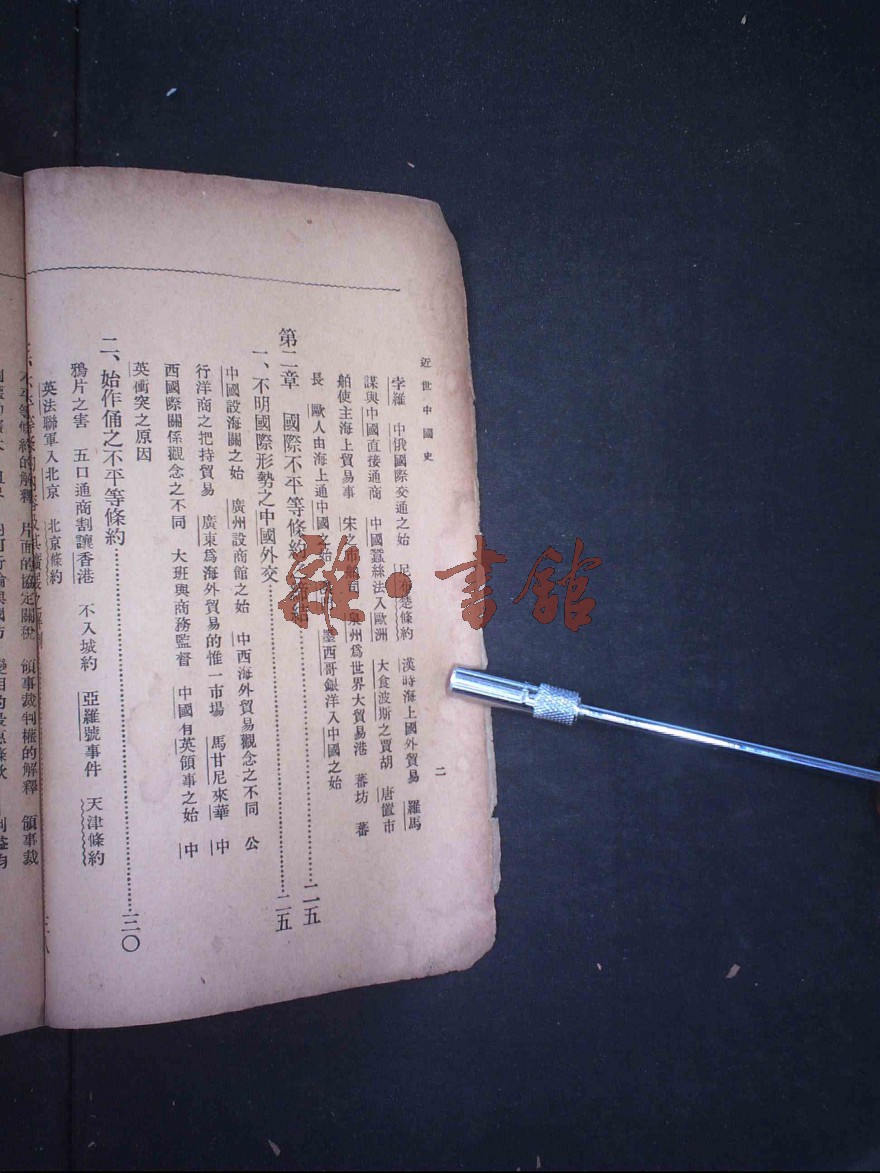 近世中國史
二
孛羅　中俄國際交通之始　尼布楚條約　漢時海上國外貿易　羅馬
謀與中國直接通商　中國蠶絲法入歐洲　大食波斯之賈胡　唐置市
舶使主海上貿易事　宋之市舶司　泉州爲世界大貿易港　蕃坊　蕃
長　歐人由海上通中國之始　墨西哥銀洋入中國之始
第二章　國際不平等條約……二五
一、不明國際形勢之中國外交……二五
中國設海關之始　廣州設商館之始　中西海外貿易觀念之不同　公
行洋商之把持貿易　廣東爲海外貿易的惟一市場　馬甘尼來華　中
西國際關係觀念之不同　大班與商務監督　中國有英領事之始　中
英衝突之原因
二、始作俑之不平等條約……三〇
鴉片之害　五口通商割讓香港　不入城約　亞羅號事件　天津條約
英法聯軍入北京　北京條約
不平等條約的解釋　片面的協定關稅　領事裁判權的解釋　領事裁
雜·書館